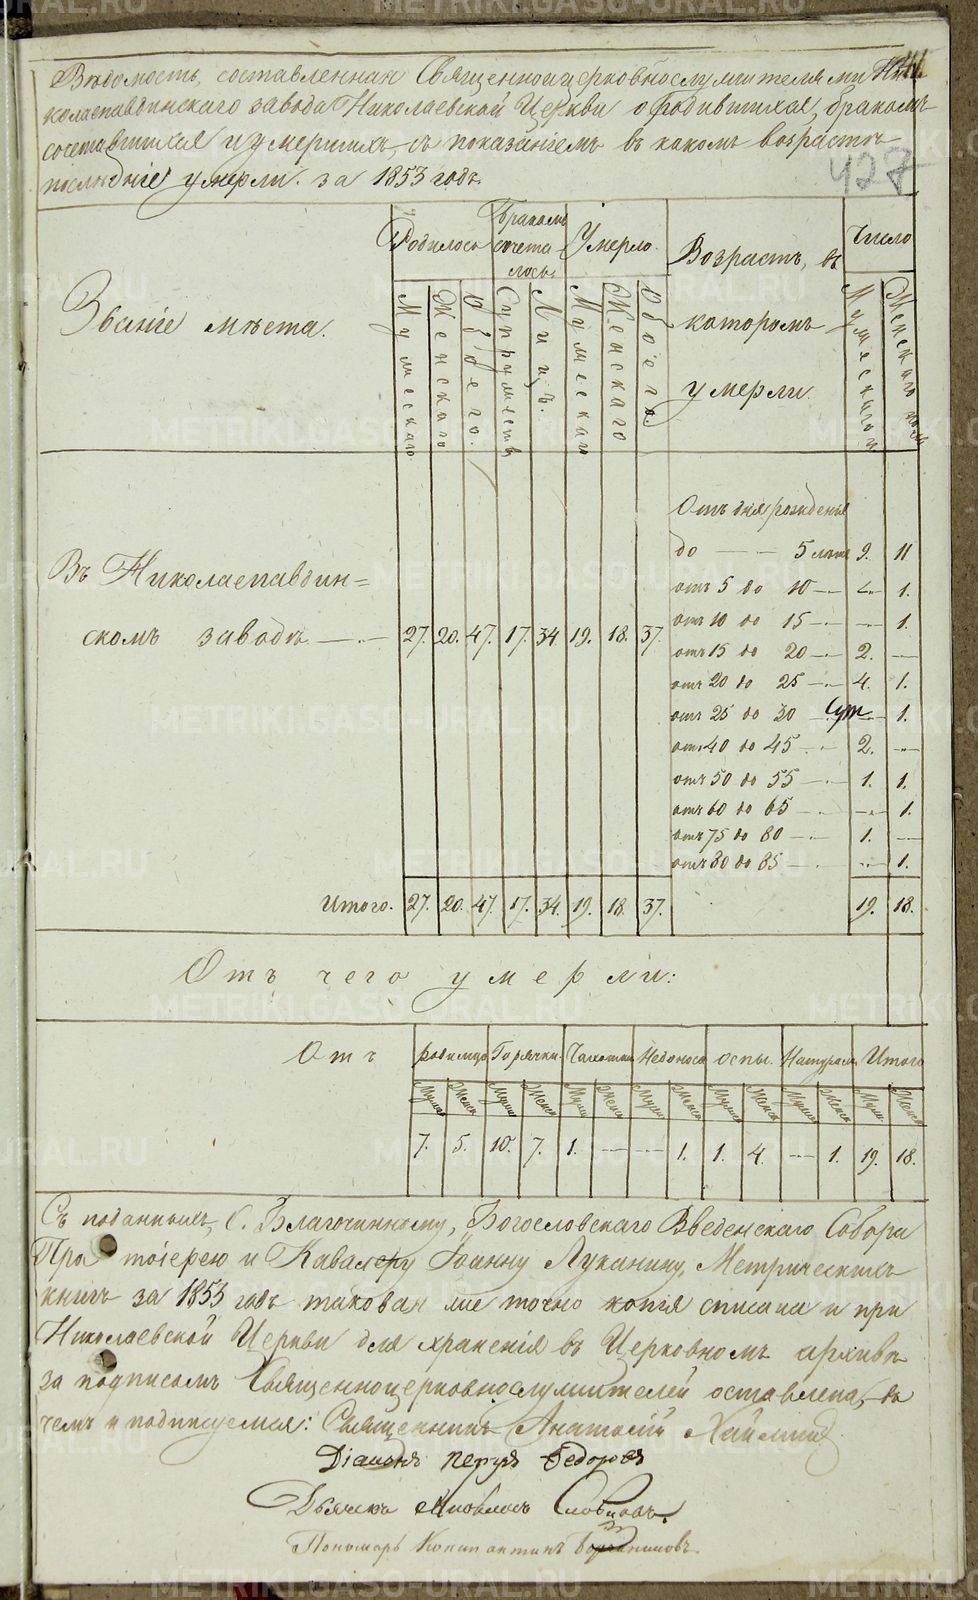 Вѣдомость, составленная Священноцерковнослужителями Ни-
колаепавдинскаго завода Николаевской Церкви о родившихся, бракомъ
сочетавшихся и умершихъ, съ показаніемъ въ какомъ возрастѣ
послѣдніе умерли. за 1853 годъ.
427
Званіе мѣста.
Родилось
Бракомъ сочета-лось.
Умерло.
Возрастъ, въ которомъ умерли.
Число
Мужескаго
Женскаго
Обоего.
Супружествъ
Лицъ.
Мужескаго
Женскаго
Обоего.
Мужескаго
Женскаго
Отъ дня рожденья
до — — 5 лѣтъ 9. 11
отъ 5 до 10 — — 1.
отъ 10 до 15 — — 1.
отъ 15 до 20 — 2. —
отъ 20 до 25 — 4. 1.
отъ 25 до 30 — — 1.
отъ 40 до 45 — 2. —
отъ 50 до 55 — 1. 1.
отъ 60 до 65 — — 1.
отъ 75 до 80 — 1. —
отъ 80 до 85 — — 1.
Въ Николаепавдин=
скомъ заводѣ — 27. 20. 47. 17. 34. 19. 18. 37.
Итого. 27. 20. 47. 17. 34. 19. 18. 37. 19. 18.
Отъ чего умерли:
Отъ родимца Горячки. Чахотки Недоноса оспы. Натурал. Итого
Муж. Женск. Муж. Женск. Муж. Женск. Муж. Женск. Муж. Женск. Муж. Женск. Муж. Женск.
7. 5. 10. 7. 1. — — 1. 1. 4. — 1. 19. 18.
Съ поданныхъ, О. Благочинному, Богословскаго Введенскаго Собора
Протоіерею и Кавалеру Іоанну Луканину, Метрическихъ
книгъ за 1853 годъ таковая же точно копія списана и при
Николаевской Церкви для храненія въ Церковномъ архивѣ
за подписомъ Священноцерковнослужителей оставлена, въ
чемъ и подписуемся: Священникъ Анатолій
Діаконъ Петръ Федоровъ
Дьячекъ Словцовъ.
Пономарь Константинъ
METRIKI.GASO-URAL.RU